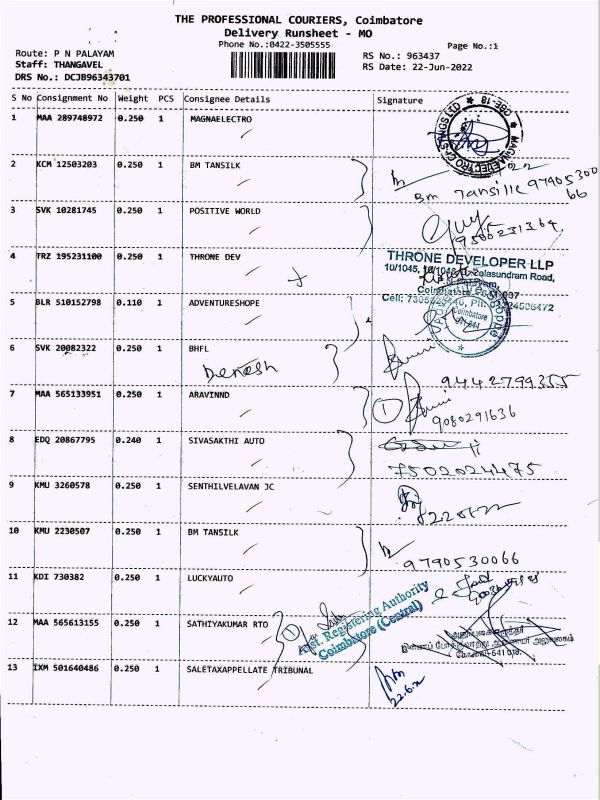 THE PROFESSIONAL COURIERS, Coimbatore
Delivery Runsheet - MO
Phone No.:0422-3505555
Page No.:1
Route: P N PALAYAM
Staff: THANGAVEL
DRS No.: DCJB96343701
RS No.: 963437
RS Date: 22-Jun-2022
S No Consignment No Weight PCS Consignee Details Signature
1 MAA 289748972 0.250 1 MAGNAELECTRO
MAGNAELECTRO CASTINGS LTD ★ CBE-18 ★
2 KCM 12503203 0.250 1 BM TANSILK
Bm Tansilk 9790530066
3 SVK 10281745 0.250 1 POSITIVE WORLD
4 TRZ 195231100 0.250 1 THRONE DEV
THRONE DEVELOPER LLP
5 BLR 510152798 0.110 1 ADVENTURESHOPE
Coimbatore
6 SVK 20082322 0.250 1 BHFL
Denesh
9442799355
7 MAA 565133951 0.250 1 ARAVINND
1
9080291636
8 EDQ 20867795 0.240 1 SIVASAKTHI AUTO
7502024475
9 KMU 3260578 0.250 1 SENTHILVELAVAN JC
10 KMU 2230507 0.250 1 BM TANSILK
9790530066
11 KDI 730382 0.250 1 LUCKYAUTO
12 MAA 565613155 0.250 1 SATHIYAKUMAR RTO
1
Asst. Registering Authority
Coimbatore (Central)
13 IXM 501640486 0.250 1 SALETAXAPPELLATE TRIBUNAL
22.6.22